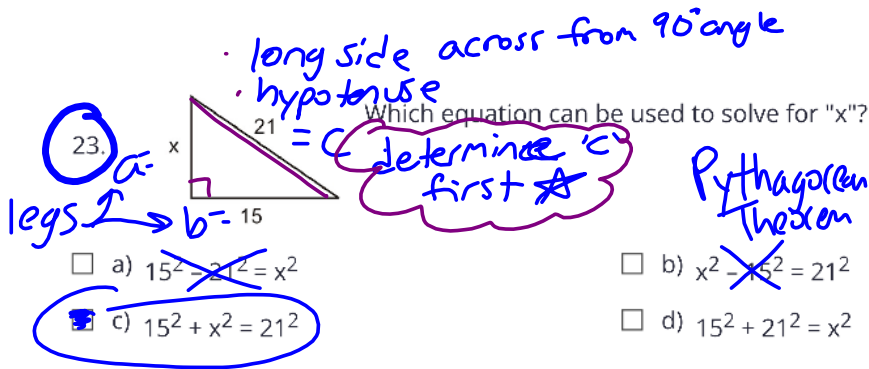 · long side across from 90° angle
· hypotenuse
Which equation can be used to solve for "x"?
23.
x
21
= c
determine 'c'
first ☆
a =
legs
b =
15
Pythagorean
Theorem
a) 15² – 21² = x²
b) x² – 15² = 21²
c) 15² + x² = 21²
d) 15² + 21² = x²